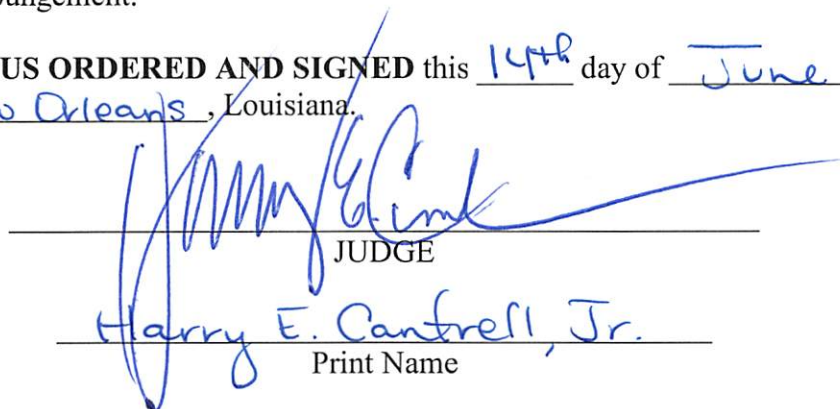 US ORDERED AND SIGNED this 14th day of June
Orleans, Louisiana.
JUDGE
Harry E. Cantrell, Jr.
Print Name